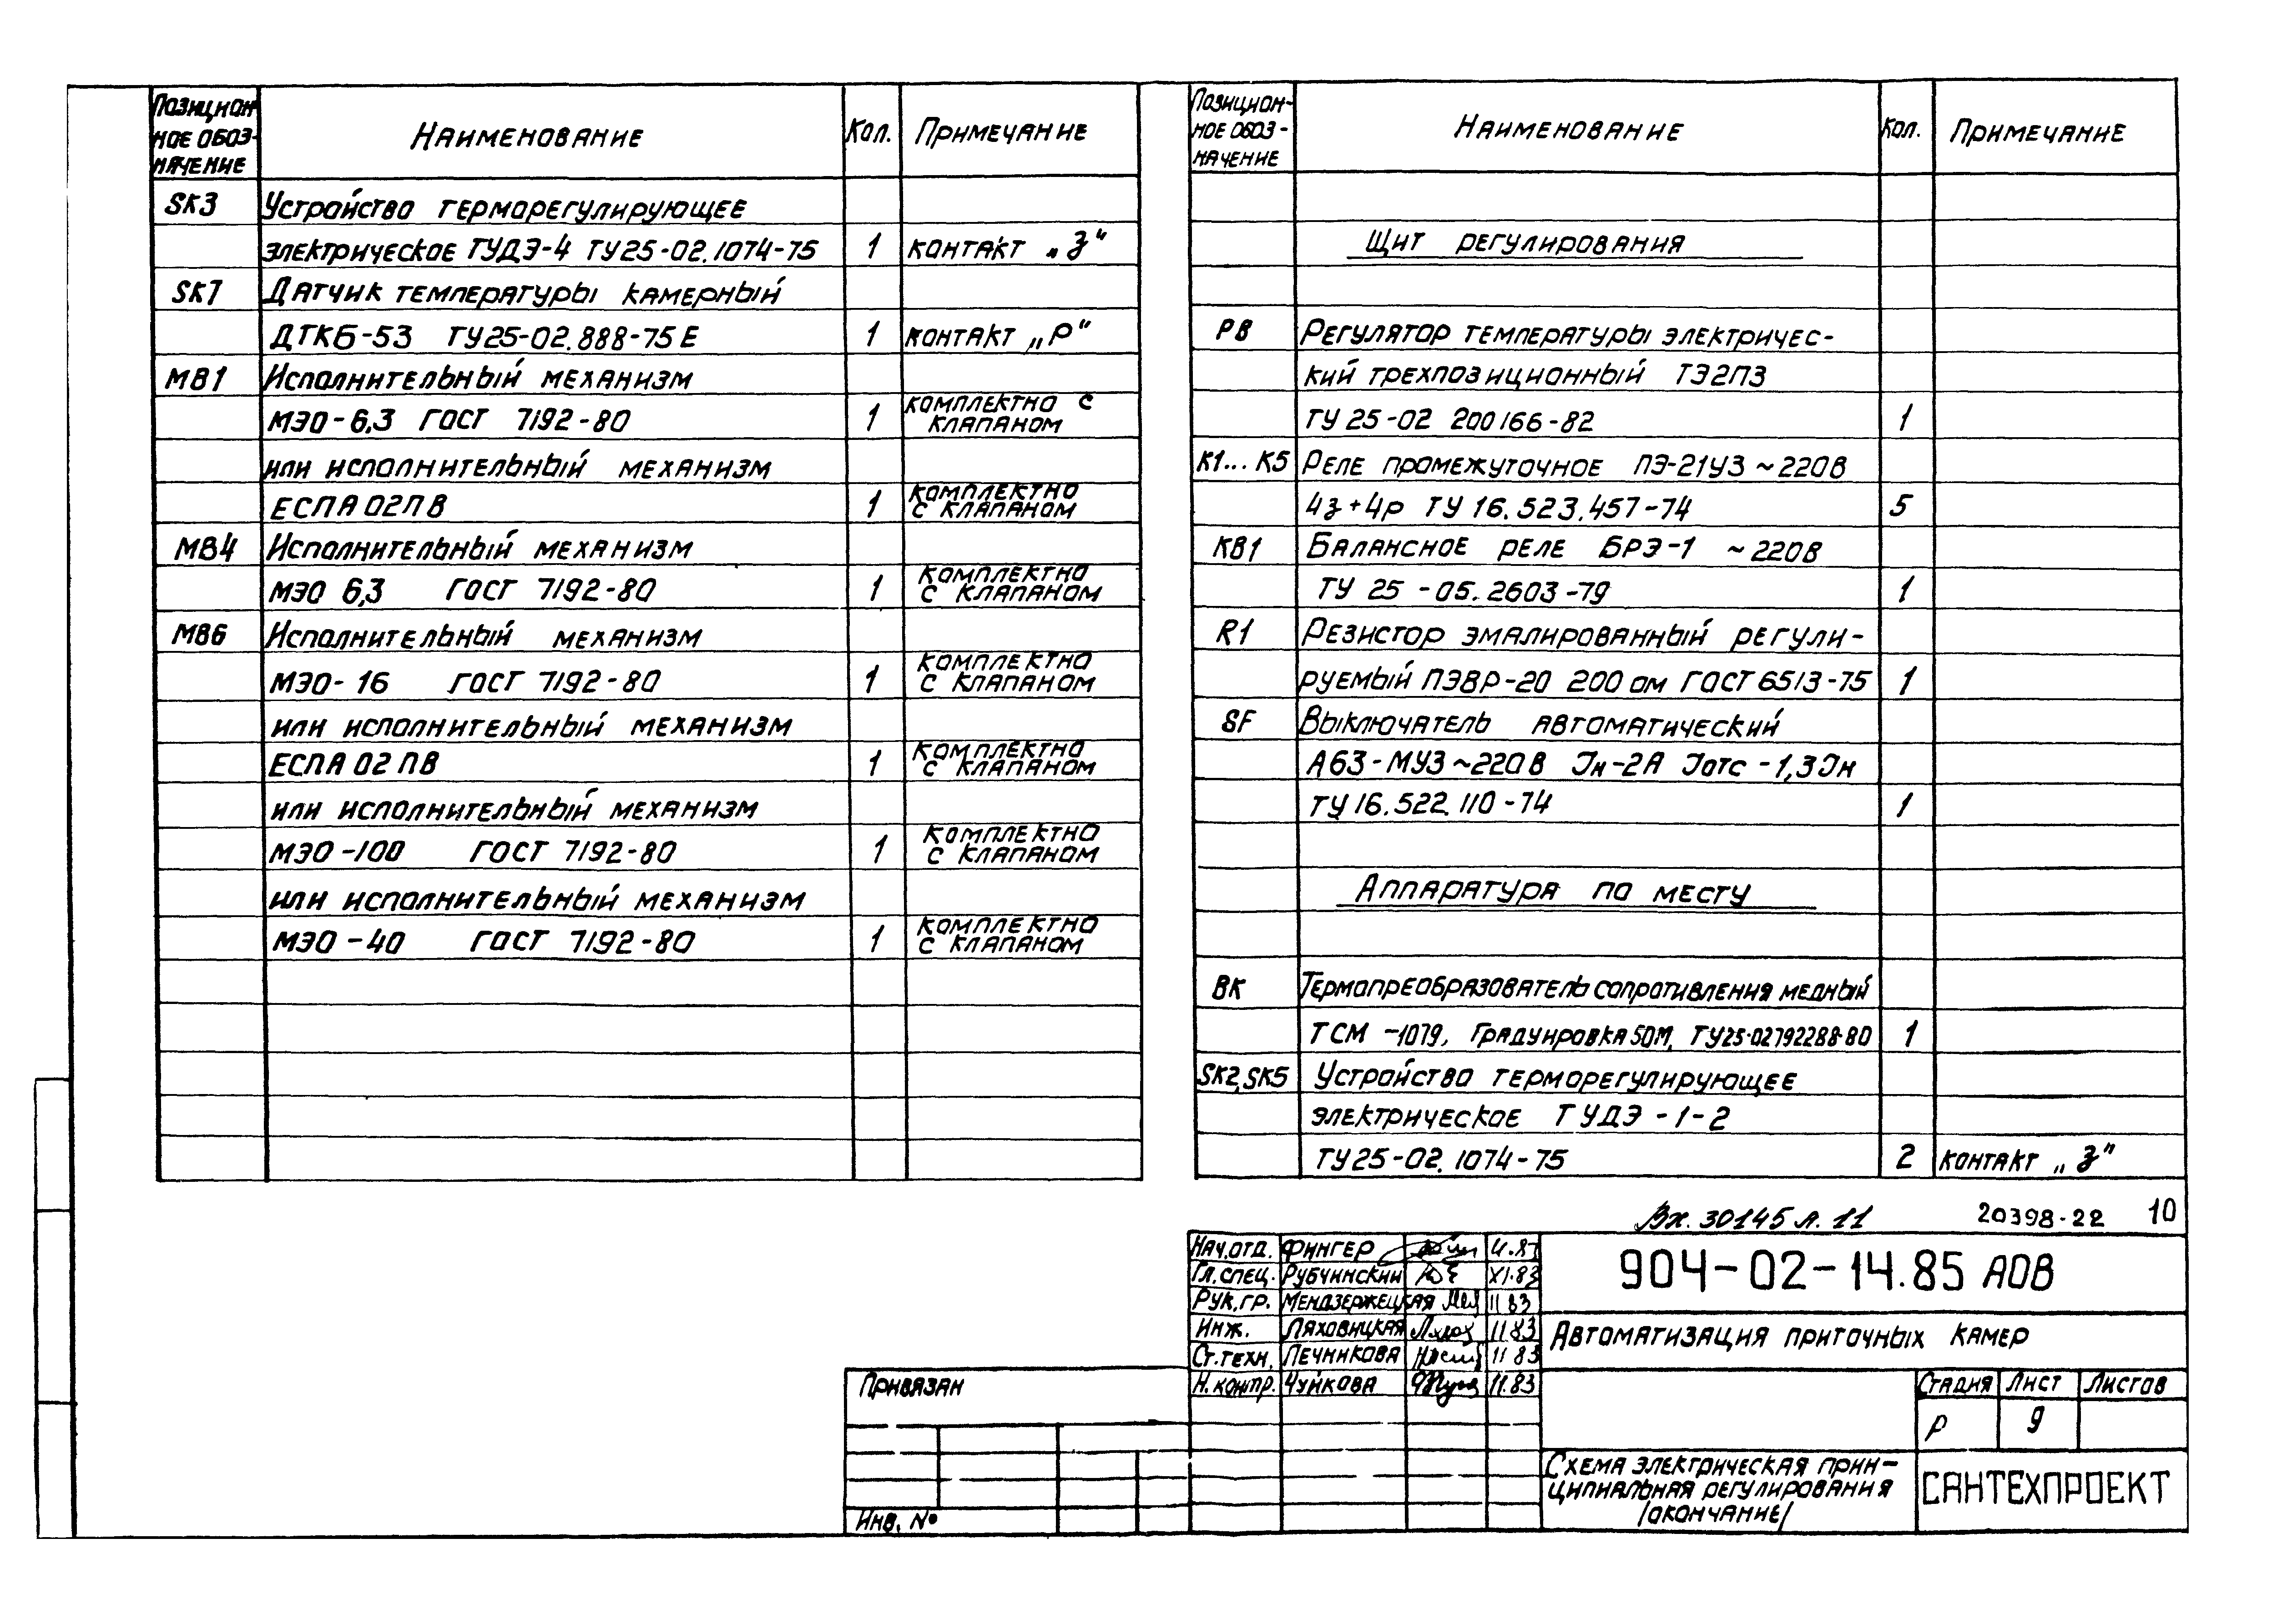 Позицион-
ное обоз-
начение
Наименование
Кол.
Примечание
SK3 Устройство терморегулирующее
электрическое ТУДЭ-4 ТУ25-02.1074-75 1 контакт „З"
SK7 Датчик температуры камерный
ДТКБ-53 ТУ25-02.888-75Е 1 контакт „Р"
МВ1 Исполнительный механизм
МЭО-6,3 ГОСТ 7192-80 1 комплектно с
клапаном
или исполнительный механизм
ЕСПА 02ПВ 1 комплектно
с клапаном
МВ4 Исполнительный механизм
МЭО 6,3 ГОСТ 7192-80 1 комплектно
с клапаном
МВ6 Исполнительный механизм
МЭО-16 ГОСТ 7192-80 1 комплектно
с клапаном
или исполнительный механизм
ЕСПА 02 ПВ 1 комплектно
с клапаном
или исполнительный механизм
МЭО-100 ГОСТ 7192-80 1 комплектно
с клапаном
или исполнительный механизм
МЭО-40 ГОСТ 7192-80 1 комплектно
с клапаном
Позицион-
ное обоз-
начение
Наименование
Кол.
Примечание
Щит регулирования
РВ Регулятор температуры электричес-
кий трехпозиционный ТЭ2П3
ТУ 25-02 200166-82 1
К1...К5 Реле промежуточное ПЭ-21У3 ~220В
4з+4р ТУ 16.523.457-74 5
КВ1 Балансное реле БРЭ-1 ~220В
ТУ 25-05.2603-79 1
R1 Резистор эмалированный регули-
руемый ПЭВР-20 200 ом ГОСТ 6513-75 1
SF Выключатель автоматический
А63-МУ3 ~220В Iн-2А Iотс-1,3Iн
ТУ16.522.110-74 1
Аппаратура по месту
ВК Термопреобразователь сопротивления медный
ТСМ-1079, Градуировка 50М, ТУ25-02792288-80 1
SK2,SK5 Устройство терморегулирующее
электрическое ТУДЭ-1-2
ТУ25-02.1074-75 2 контакт „З"
Вх. 30145 л. 11 20398-22 10
Нач.отд. Фингер
Гл.спец. Рубчинский XI.83
Рук.гр. Мендзержецкая 11 83
Инж. Ляховицкая 11 83
Ст.техн. Печникова 11 83
Н.контр. Чуйкова 11.83
904-02-14.85 АОВ
Автоматизация приточных камер
Привязан
Инв. №
Стадия Лист Листов
Р 9
Схема электрическая прин-
ципиальная регулирования
/окончание/
САНТЕХПРОЕКТ